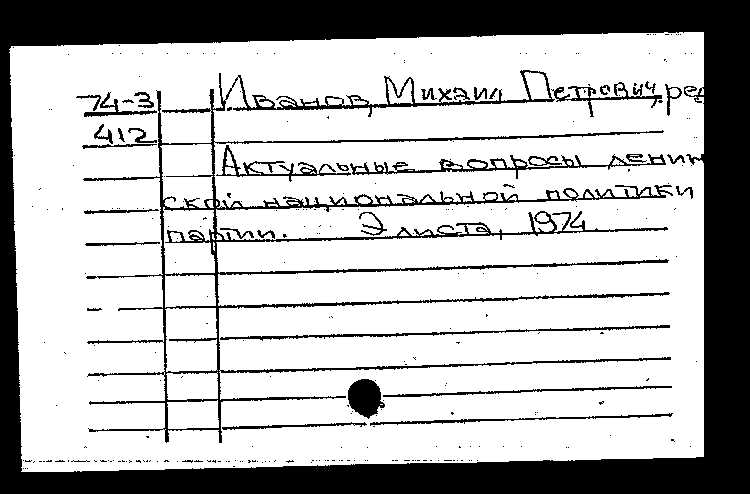 74-3 Иванов, Михаил Петрович, ред
412
Актуальные вопросы ленин
ской национальной политики
партии. Элиста, 1974.